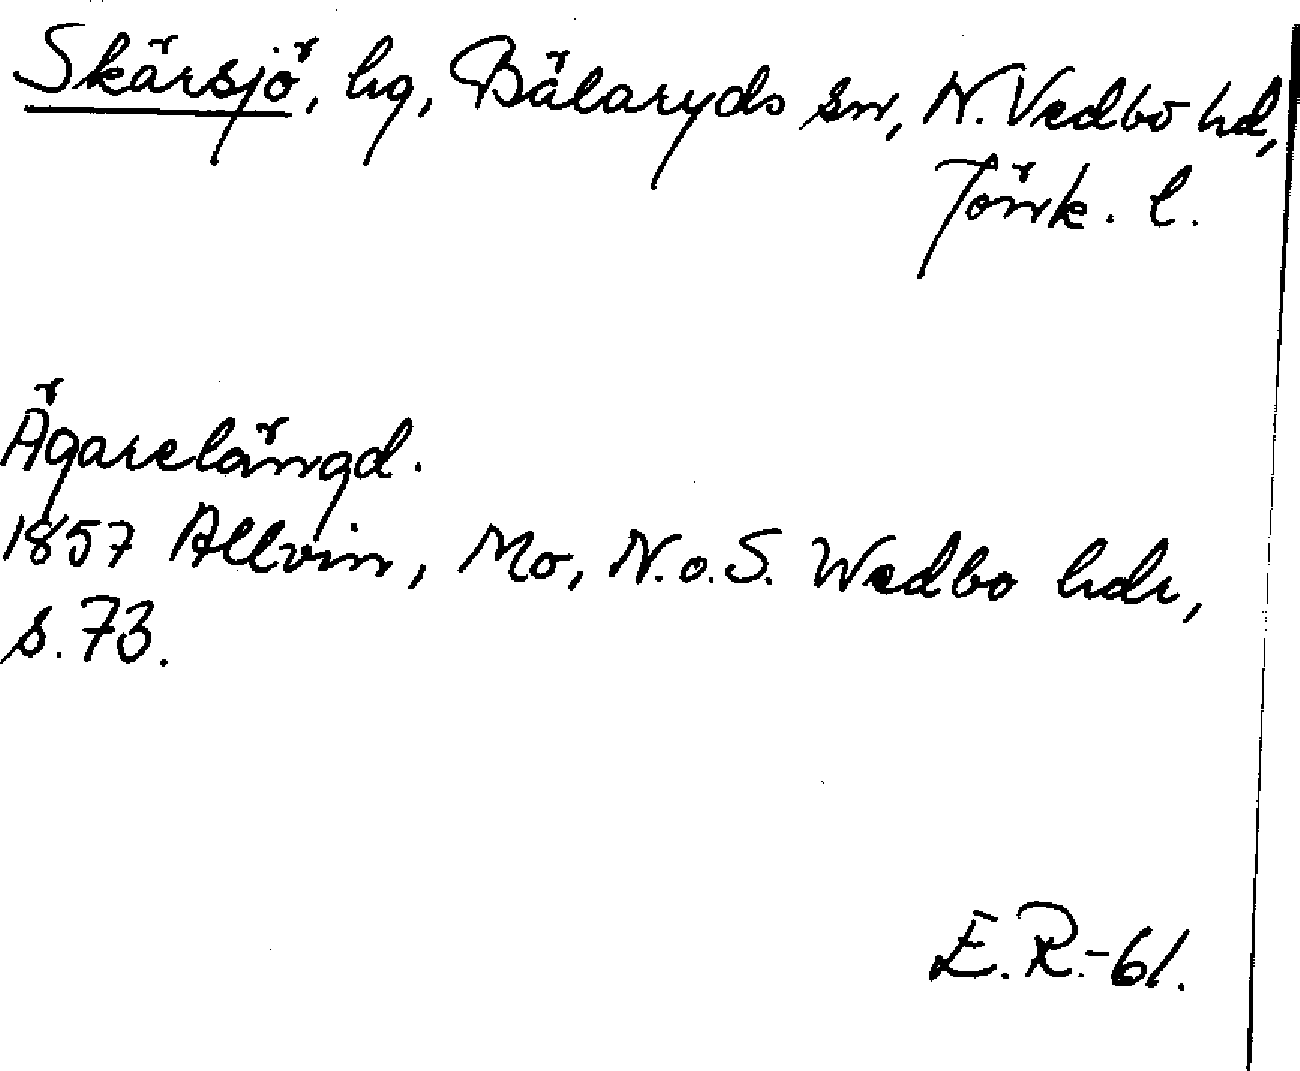 Skärsjö, hg, Bälaryds sn, N. Vedbo hd,
Jönk. l.
Ägarelängd.
1857 Allvin, Mo, N. o. S. Wedbo hdr,
s. 73.
E. R.-61.